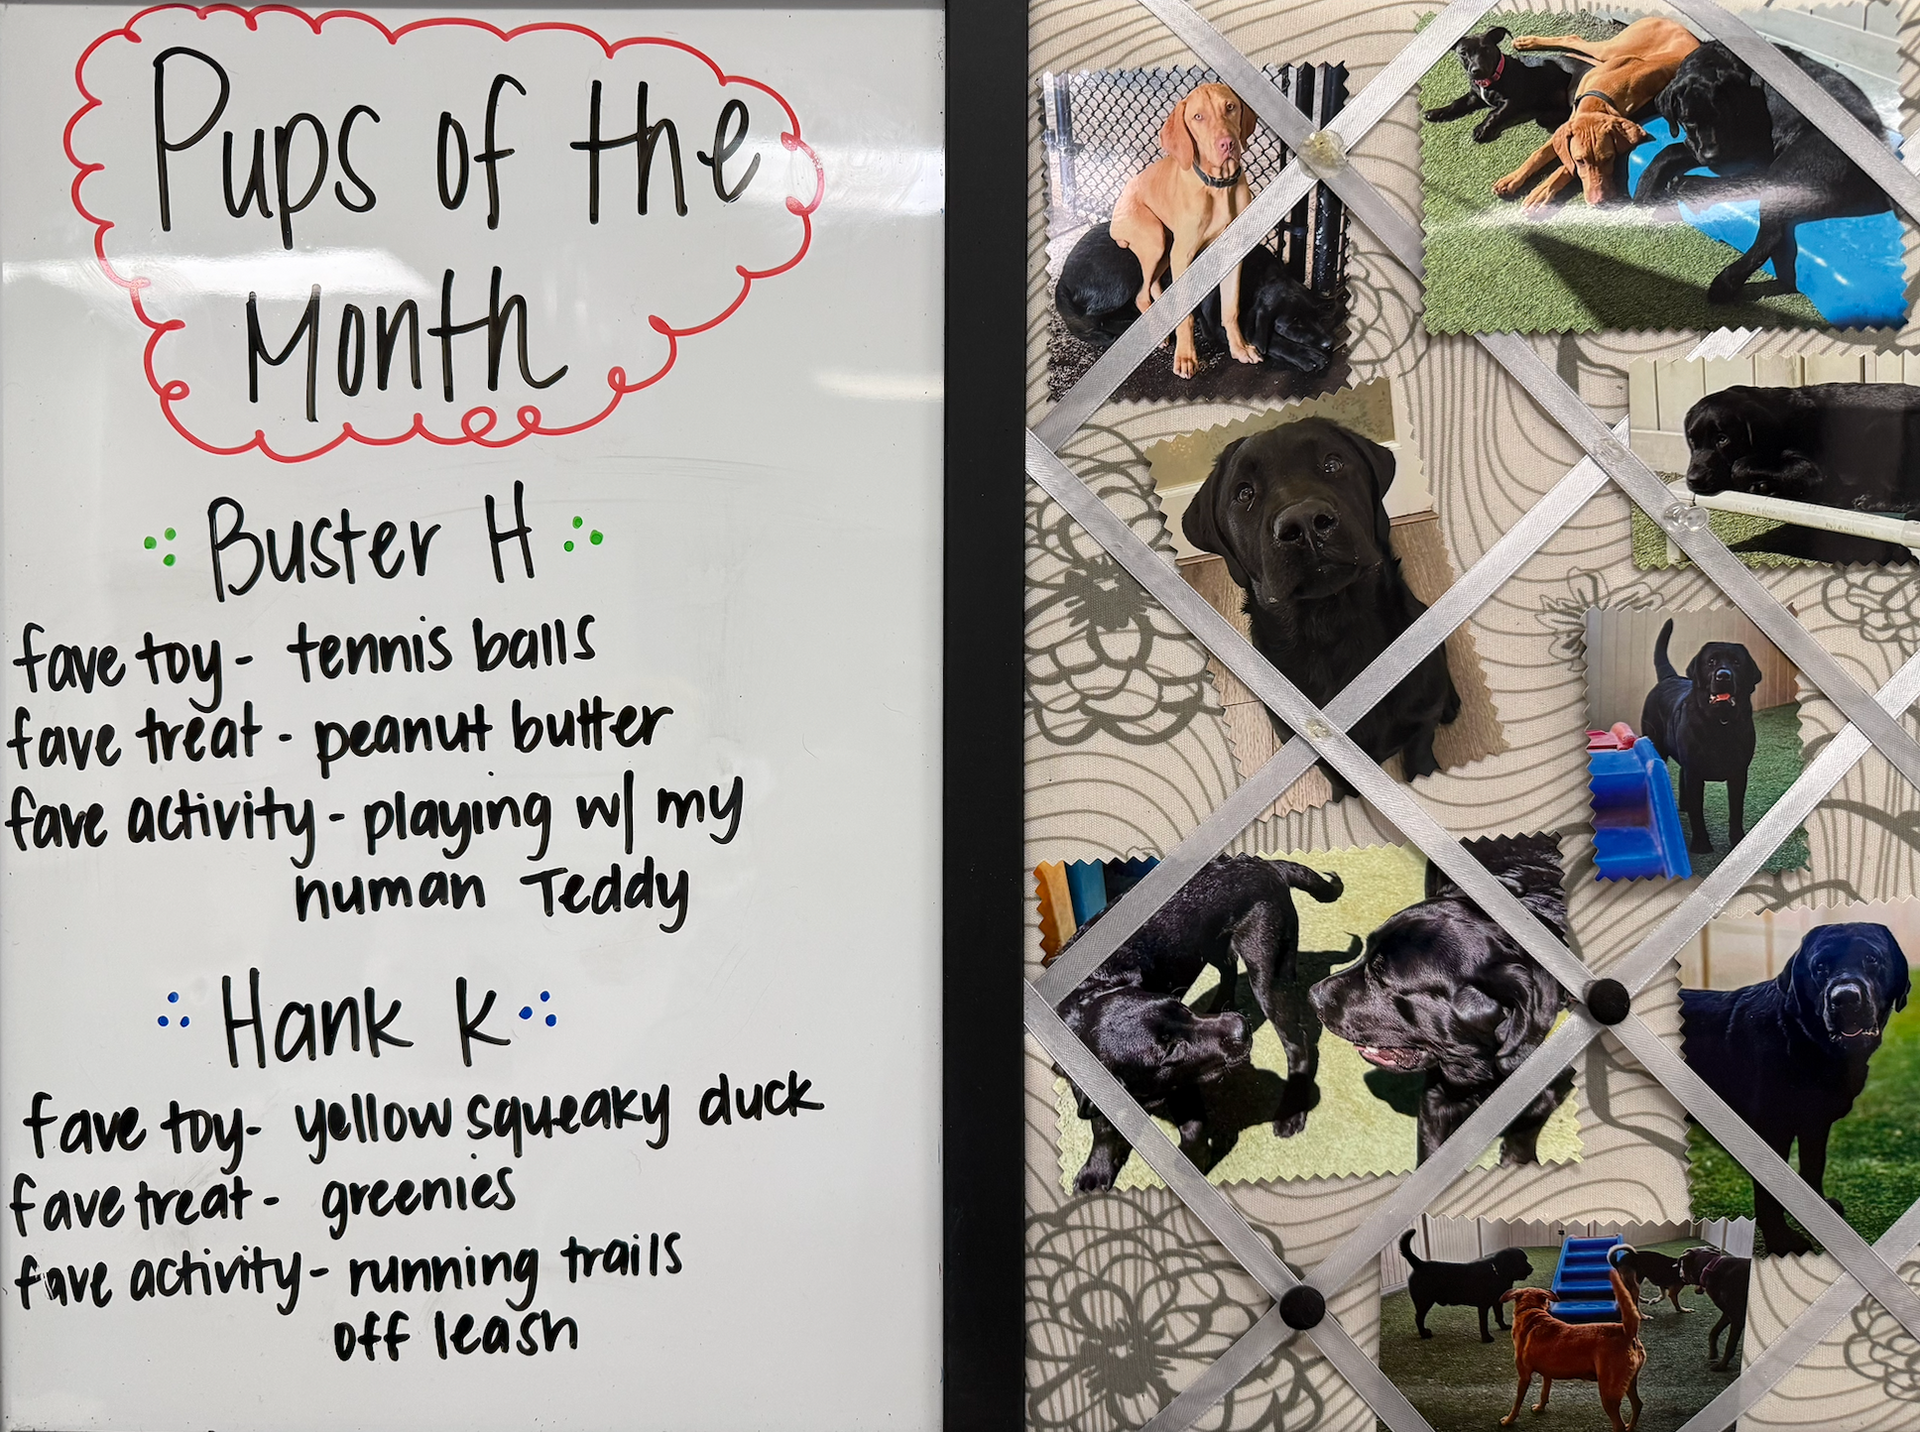 Pups of the
Month
Buster H
fave toy - tennis balls
fave treat - peanut butter
fave activity - playing w/ my
human Teddy
Hank K
fave toy - yellow squeaky duck
fave treat - greenies
fave activity - running trails
off leash